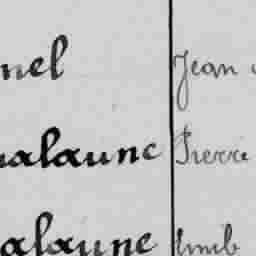 nel Jean
alaune Pierre
alaune